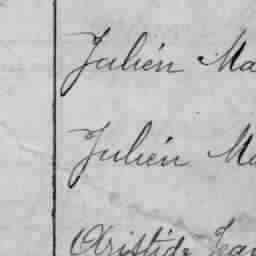 Julién Ma
Julién Ma
Aristide Jea